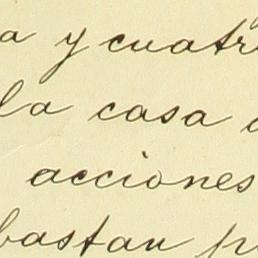 a y cuatr
la casa
acciones
bastan p